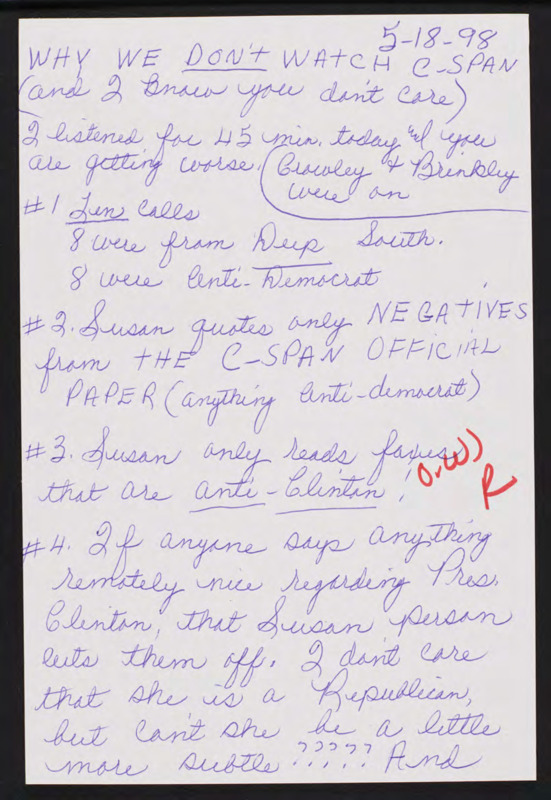 5-18-98
WHY WE DON'T WATCH C-SPAN
(and I know you don't care)
I listened for 45 min. today and you
are getting worse. (Crowley & Brinkley
were on
#1 Ten calls
8 were from Deep South.
8 were Anti-Democrat
#2. Susan quotes only NEGATIVES
from THE C-SPAN OFFICIAL
PAPER (anything Anti-democrat)
#3. Susan only reads faxes
that are anti-Clinton!
R
#4. If anyone says anything
remotely nice regarding Pres.
Clinton, that Susan person
cuts them off. I don't care
that she is a Republican,
but can't she be a little
more subtle????? And